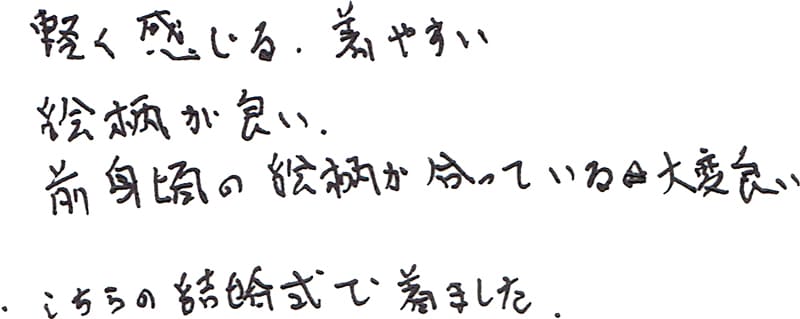 軽く感じる. 着やすい
絵柄が良い.
前身頃の絵柄が合っている⇦大変良い
. こちらの結婚式で着ました.